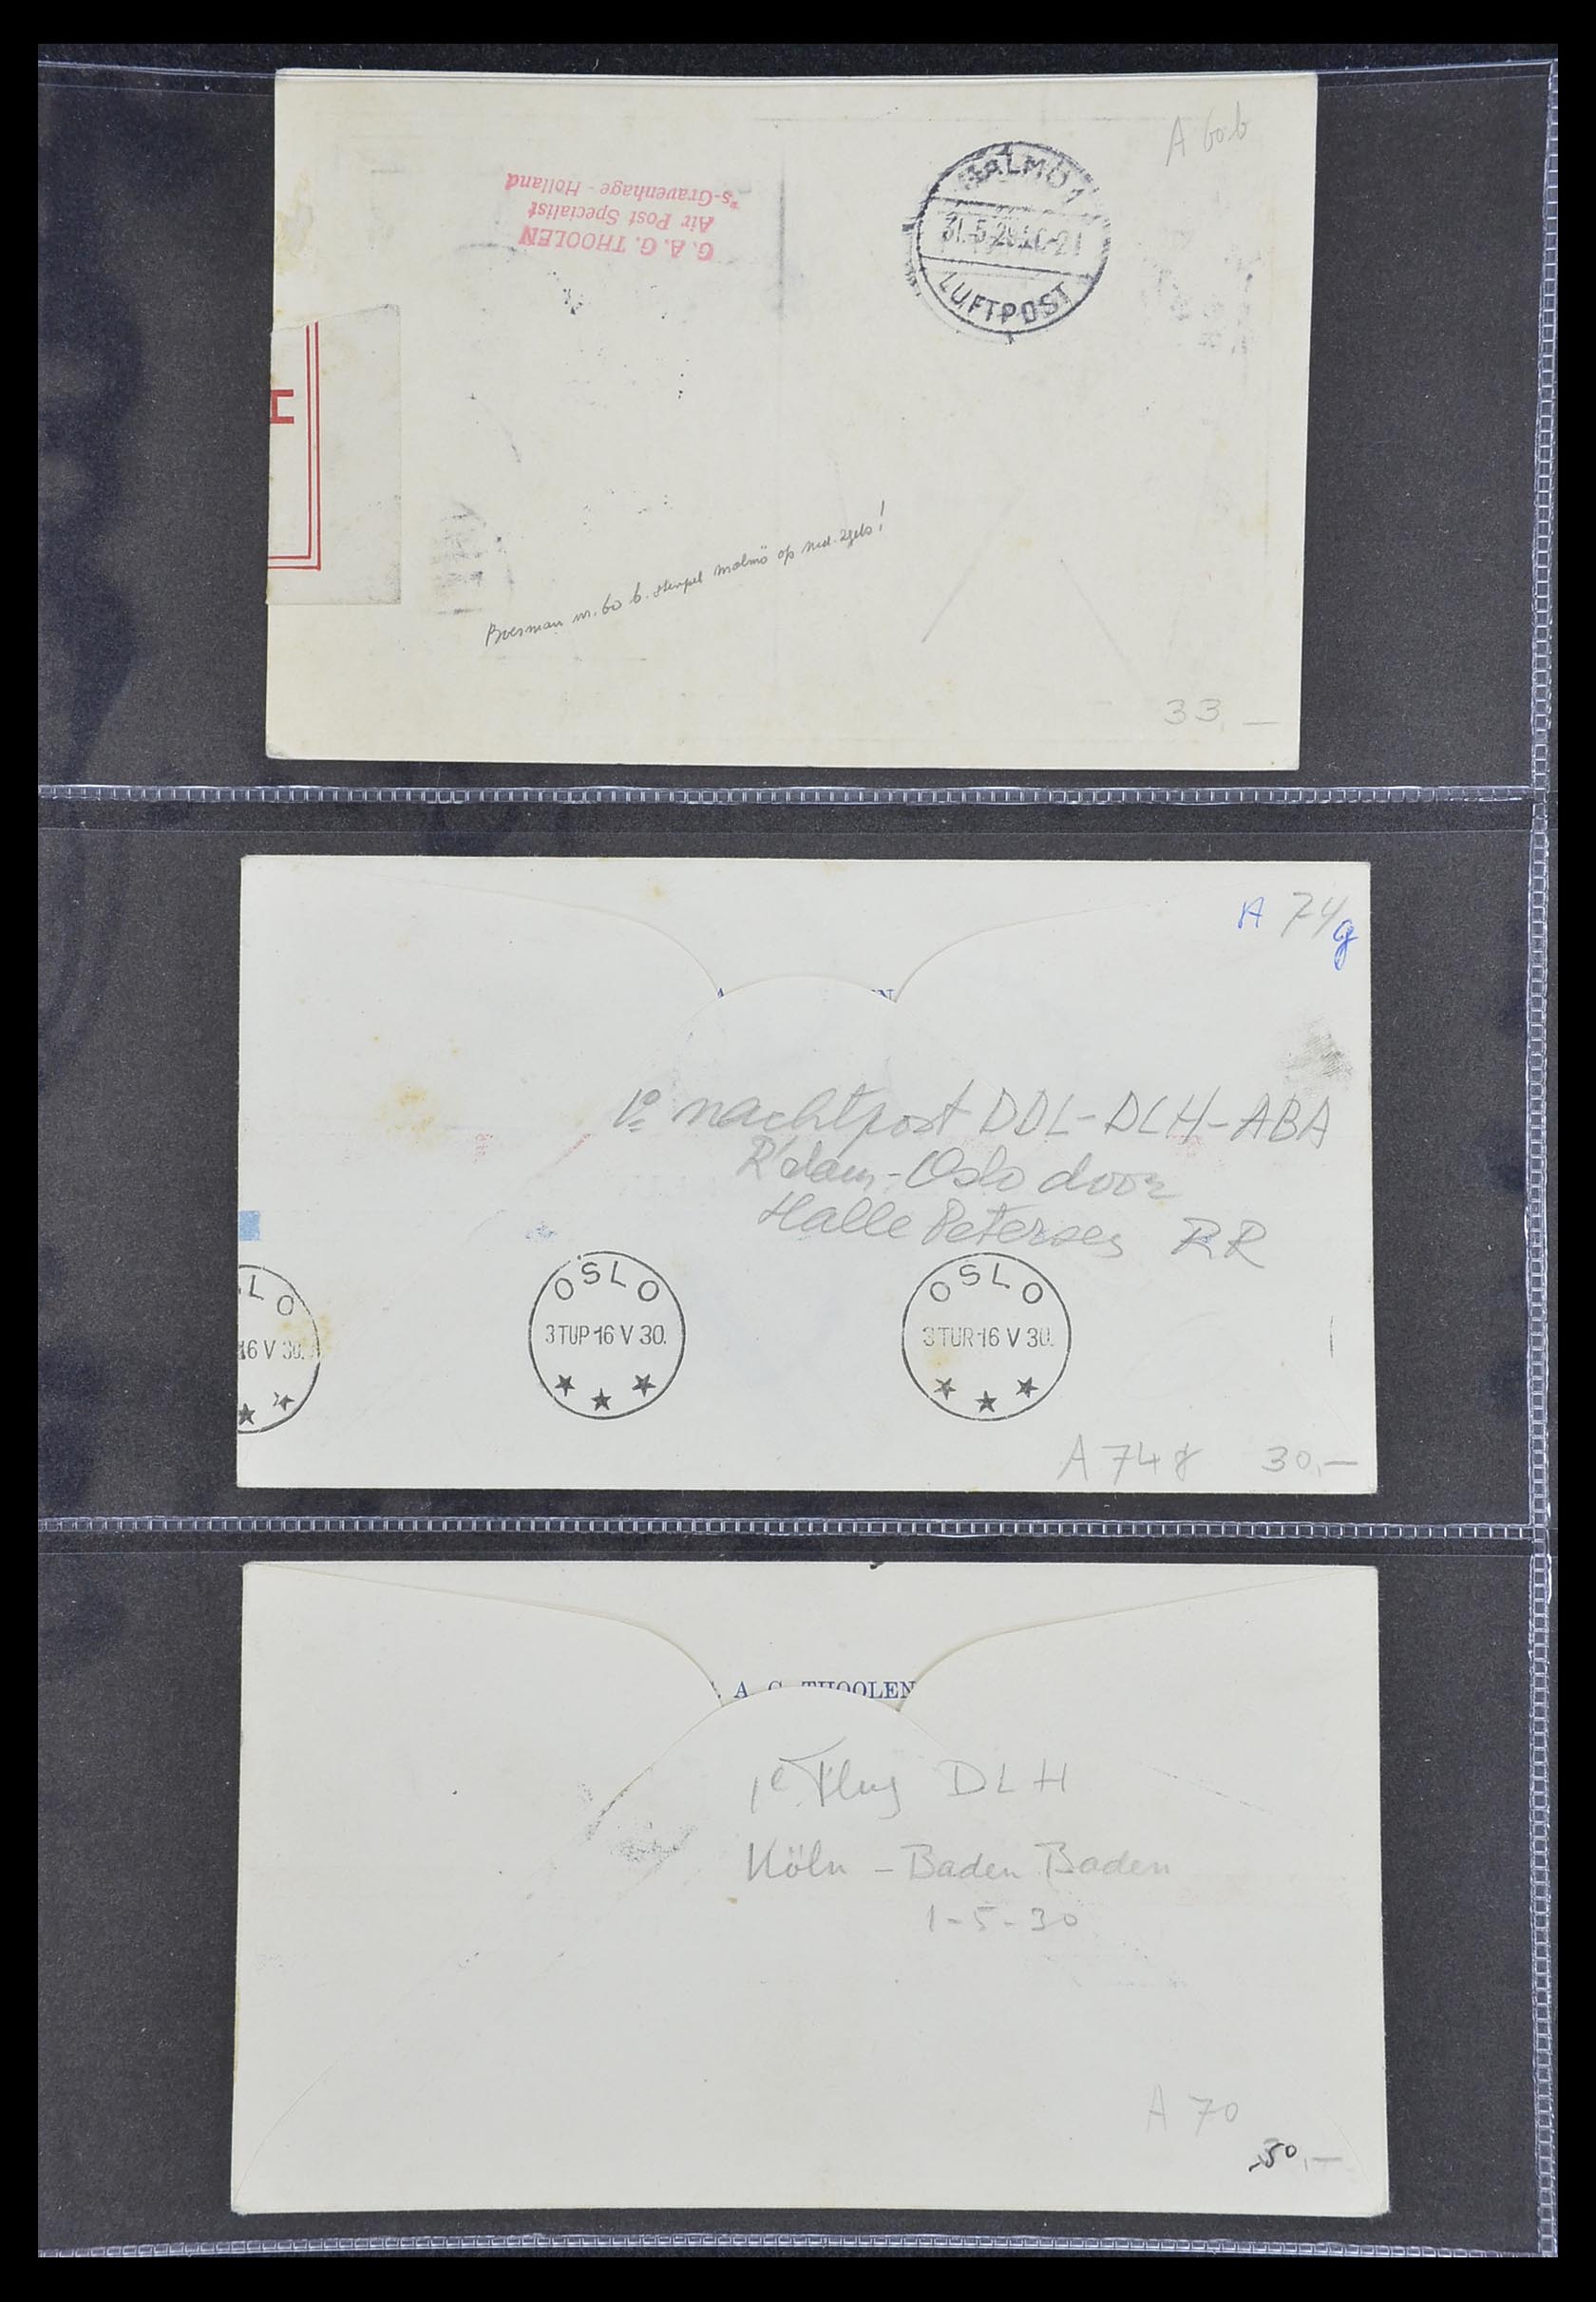 A 60b
G. A. G. THOOLEN
Air Post Specialist
's-Gravenhage - Holland
MALMÖ 1
31.5.29
LUFTPOST
H
Boesman nr. 60 b. stempel Malmö op Ned. zgels!
33,—
A 74 g
N
1e nachtpost DDL-DLH-ABA
R'dam-Oslo door
Halle Petersen RR
OSLO
16 V 30.
OSLO
3 TUR 16 V 30.
OSLO
3 TUR 16 V 30.
A 74 g 30,—
A. G. THOOLEN
1e Flug DLH
Köln - Baden Baden
1-5-30
A 70
50,—